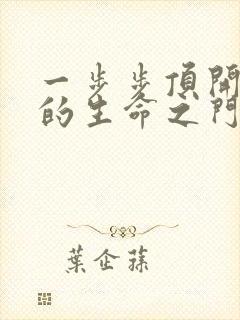 一步步頂開
的生命之門
葉企蓀